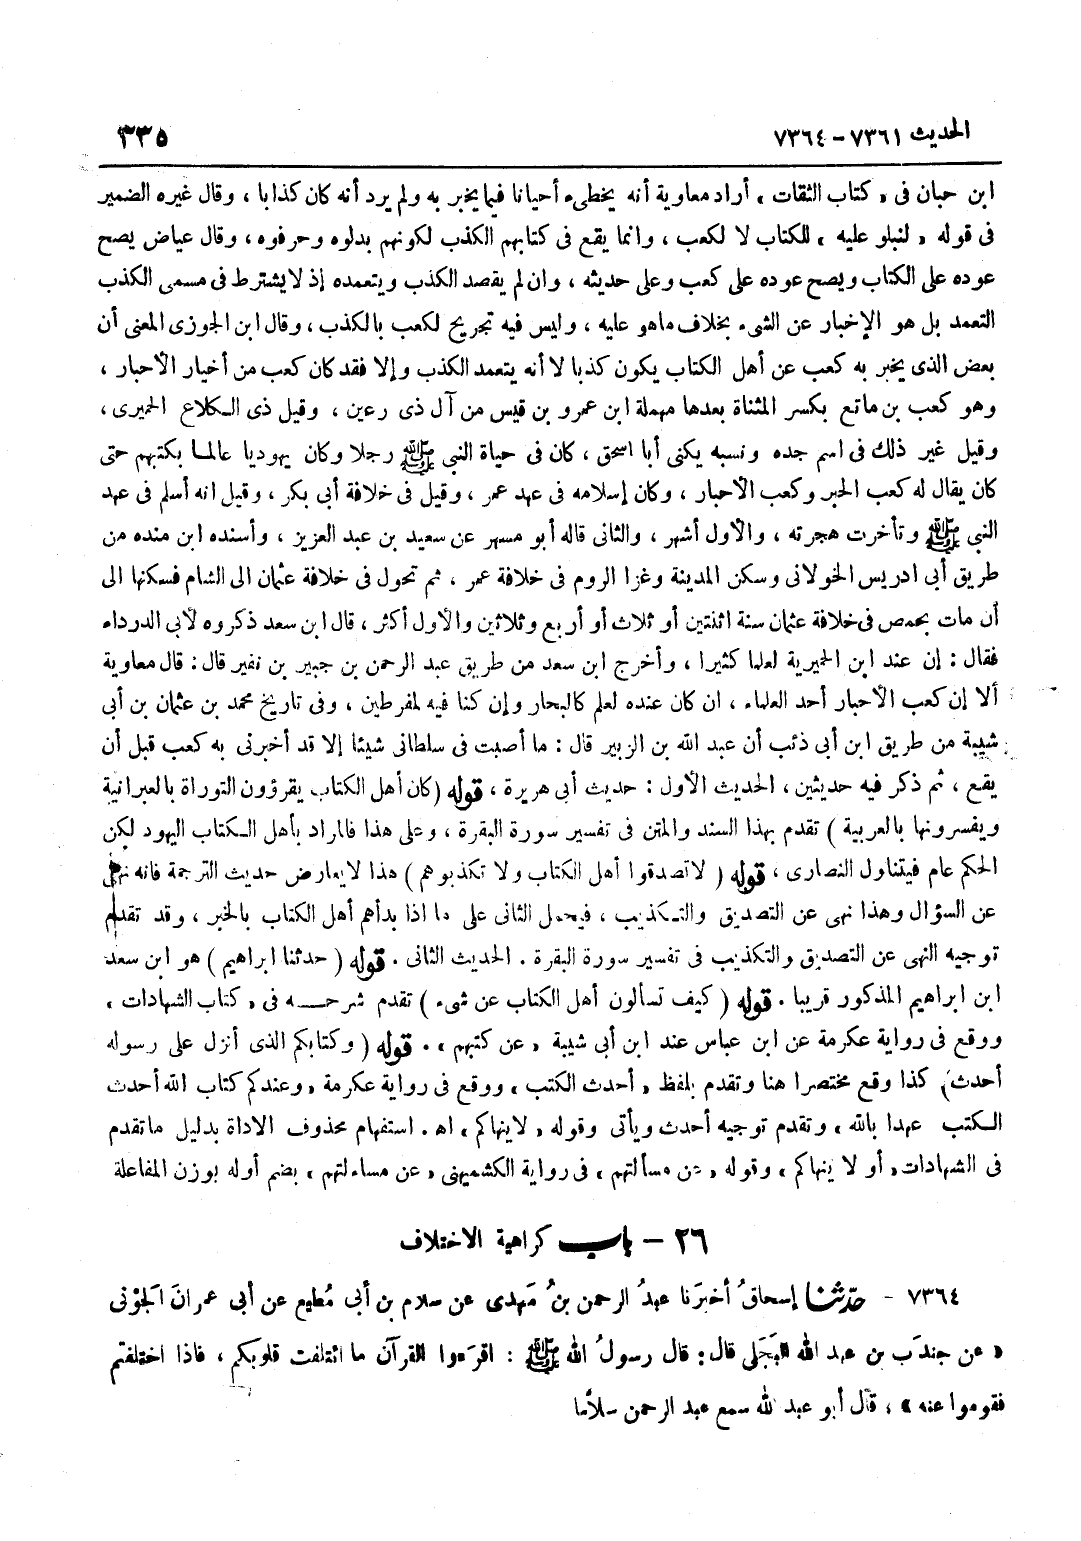 الحديث ٧٣٦١ - ٧٣٦٤ ٣٣٥
ابن حبان فى « كتاب الثقات » أراد معاوية أنه يخطىء أحيانا فيما يخبر به ولم يرد أنه كان كذابا ، وقال غيره الضمير
فى قوله « لنبلو عليه » للكتاب لا لكعب ، وانما يقع فى كتابهم الكذب لكونهم بدلوه وحرفوه ، وقال عياض يصح
عوده على الكتاب ويصح عوده على كعب وعلى حديثه ، وان لم يقصد الكذب ويتعمده إذ لا يشترط فى مسمى الكذب
التعمد بل هو الإخبار عن الشىء بخلاف ماهو عليه ، وليس فيه تجريح لكعب بالكذب ، وقال ابن الجوزى المعنى أن
بعض الذى يخبر به كعب عن أهل الكتاب يكون كذبا لا أنه يتعمد الكذب وإلا فقد كان كعب من أخيار الأحبار ،
وهو كعب بن ماتع بكسر المثناة بعدها مهملة ابن عمرو بن قيس من آل ذى رعين ، وقيل ذى الكلاع الحميرى ،
وقيل غير ذلك فى اسم جده ونسبه يكنى أبا اسحق ، كان فى حياة النبى ﷺ رجلا وكان يهوديا عالما بكتبهم حتى
كان يقال له كعب الحبر وكعب الأحبار ، وكان إسلامه فى عهد عمر ، وقيل فى خلافة أبى بكر ، وقيل انه أسلم فى عهد
النبى ﷺ وتأخرت هجرته ، والأول أشهر ، والثانى قاله أبو مسهر عن سعيد بن عبد العزيز ، وأسنده ابن منده من
طريق أبى ادريس الخولانى وسكن المدينة وغزا الروم فى خلافة عمر ، ثم تحول فى خلافة عثمان الى الشام فسكنها الى
أن مات بحمص فى خلافة عثمان سنة اثنتين أو ثلاث أو أربع وثلاثين والأول أكثر ، قال ابن سعد ذكروه لأبى الدرداء
فقال : إن عند ابن الحميرية لعلما كثيرا ، وأخرج ابن سعد من طريق عبد الرحمن بن جبير بن نفير قال : قال معاوية
ألا إن كعب الأحبار أحد العلماء ، ان كان عنده لعلم كالبحار وإن كنا فيه لمفرطين ، وفى تاريخ محمد بن عثمان بن أبى
شيبة من طريق ابن أبى ذئب أن عبد الله بن الزبير قال : ما أصبت فى سلطانى شيئا إلا قد أخبرنى به كعب قبل أن
يقع ، ثم ذكر فيه حديثين ، الحديث الأول : حديث أبى هريرة ، قوله (كان أهل الكتاب يقرؤون التوراة بالعبرانية
ويفسرونها بالعربية ) تقدم بهذا السند والمتن فى تفسير سورة البقرة ، وعلى هذا فالمراد بأهل الكتاب اليهود لكن
الحكم عام فيتناول النصارى ، قوله ( لاتصدقوا أهل الكتاب ولا تكذبوهم ) هذا لايعارض حديث الترجمة فانه نهى
عن السؤال وهذا نهى عن التصديق والتكذيب ، فيحمل الثانى على ما اذا بدأهم أهل الكتاب بالخبر ، وقد تقدم
توجيه النهى عن التصديق والتكذيب فى تفسير سورة البقرة . الحديث الثانى . قوله ( حدثنا ابراهيم ) هو ابن سعد
ابن ابراهيم المذكور قريبا . قوله ( كيف تسألون أهل الكتاب عن شىء ) تقدم شرحه فى « كتاب الشهادات »
ووقع فى رواية عكرمة عن ابن عباس عند ابن أبى شيبة « عن كتبهم » . قوله ( وكتابكم الذى أنزل على رسوله
أحدث ) كذا وقع مختصرا هنا وتقدم بلفظ « أحدث الكتب » ووقع فى رواية عكرمة « وعندكم كتاب الله أحدث
الكتب عهدا بالله » وتقدم توجيه أحدث ويأتى وقوله « لاينهاكم » اه . استفهام محذوف الاداة بدليل ماتقدم
فى الشهادات « أو لا ينهاكم » وقوله « عن مسألتهم » فى رواية الكشميهنى « عن مساءلتهم » بضم أوله بوزن المفاعلة
٢٦ - باب كراهية الاختلاف
٧٣٦٤ - حدّثنا إسحاقُ أخبرَنا عبدُ الرحمن بنُ مَهدى عن سلام بن أبى مُطيع عن أبى عمرانَ الجَوْنى
« عن جندَب بن عبد الله البَجَلى قال : قال رسولُ الله ﷺ : اقرَءوا القرآن ما ائتلفت قلوبكم ، فاذا اختلفتم
فقوموا عنه » ، قال أبو عبد الله سمع عبد الرحمن سلاّما